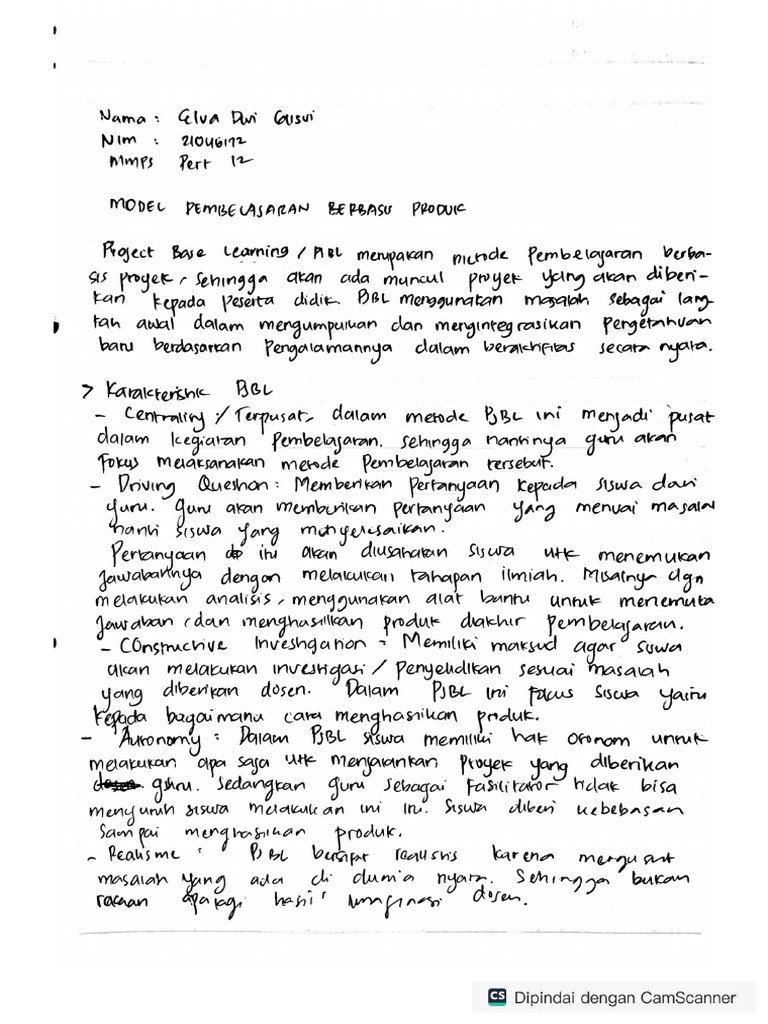 Nama : Elva Dwi Gusvi
Nim : 21046172
MMPS Pert 12
MODEL PEMBELAJARAN BERBASIS PRODUK
Project Base Learning / PJBL merupakan metode Pembelajaran berba-
sis proyek, sehingga akan ada muncul proyek yang akan diberi-
kan kepada peserta didik. PJBL menggunakan masalah sebagai lang-
kah awal dalam mengumpulkan dan mengintegrasikan Pengetahuan
baru berdasarkan Pengalamannya dalam berakhifitas secara nyata.
> Karakteristik PJBL
- Centrality / Terpusat, dalam metode PJBL ini menjadi pusat
dalam kegiatan Pembelajaran. sehingga nantinya guru akan
Fokus melaksanakan metode Pembelajaran tersebut.
- Driving Question : Memberikan Pertanyaan kepada siswa dari
guru. Guru akan memberikan pertanyaan yang memuai masalah
nanti siswa yang menyelesaikan.
Pertanyaan itu akan diusahakan siswa utk menemukan
Jawabannya dengan melakukan tahapan ilmiah. Misalnya dgn
melakukan analisis, menggunakan alat bantu untuk menemuka
Jawaban, dan menghasilkan produk diakhir pembelajaran.
- Constructive Investigation = Memiliki maksud agar siswa
akan melakukan investigasi / Penyelidikan sesuai masalah
yang diberikan dosen. Dalam PJBL ini Fokus siswa yaitu
kepada bagaimana cara menghasilkan produk.
- Autonomy : Dalam PJBL siswa memiliki hak otonom untuk
melakukan apa saja utk menjalankan Proyek yang diberikan
guru. Sedangkan guru sebagai Fasilitator tidak bisa
menyuruh siswa melakukan ini itu. Siswa diberi kebebasan
Sampai menghasilkan produk.
- Realisme : PJBL bersifat realistis karena mengusut
masalah yang ada di dunia nyata. Sehingga bukan
apalagi hasil imajinasi dosen.
CS Dipindai dengan CamScanner